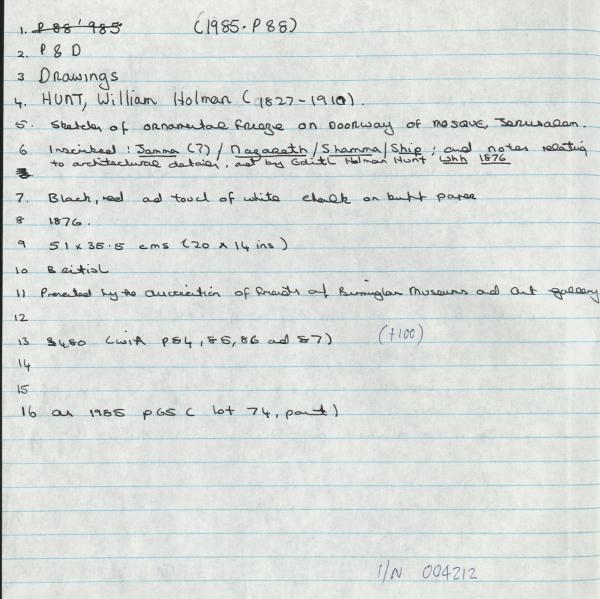 1. P88'985 (1985.P88)
2. P & D
3 Drawings
4. HUNT, William Holman (1827-1910).
5. Sketches of ornamental frieze on doorway of mosque, Jerusalem.
6 Inscribed: Jamma (?) / Nazareth / Shamma / Ship; and notes relating
to architectural details; and by Edith Holman Hunt Whh 1876
7. Black, red and touch of white chalk on buff paper
8 1876.
9 51 x 35.5 cms (20 x 14 ins)
10 British
11 Presented by the Association of Friends of Birmingham Museums and Art Gallery
12
13 £480 (with P84, 85, 86 and 87) (+100)
14
15
16 as 1985 P65 (lot 74, part)
I/N 004212